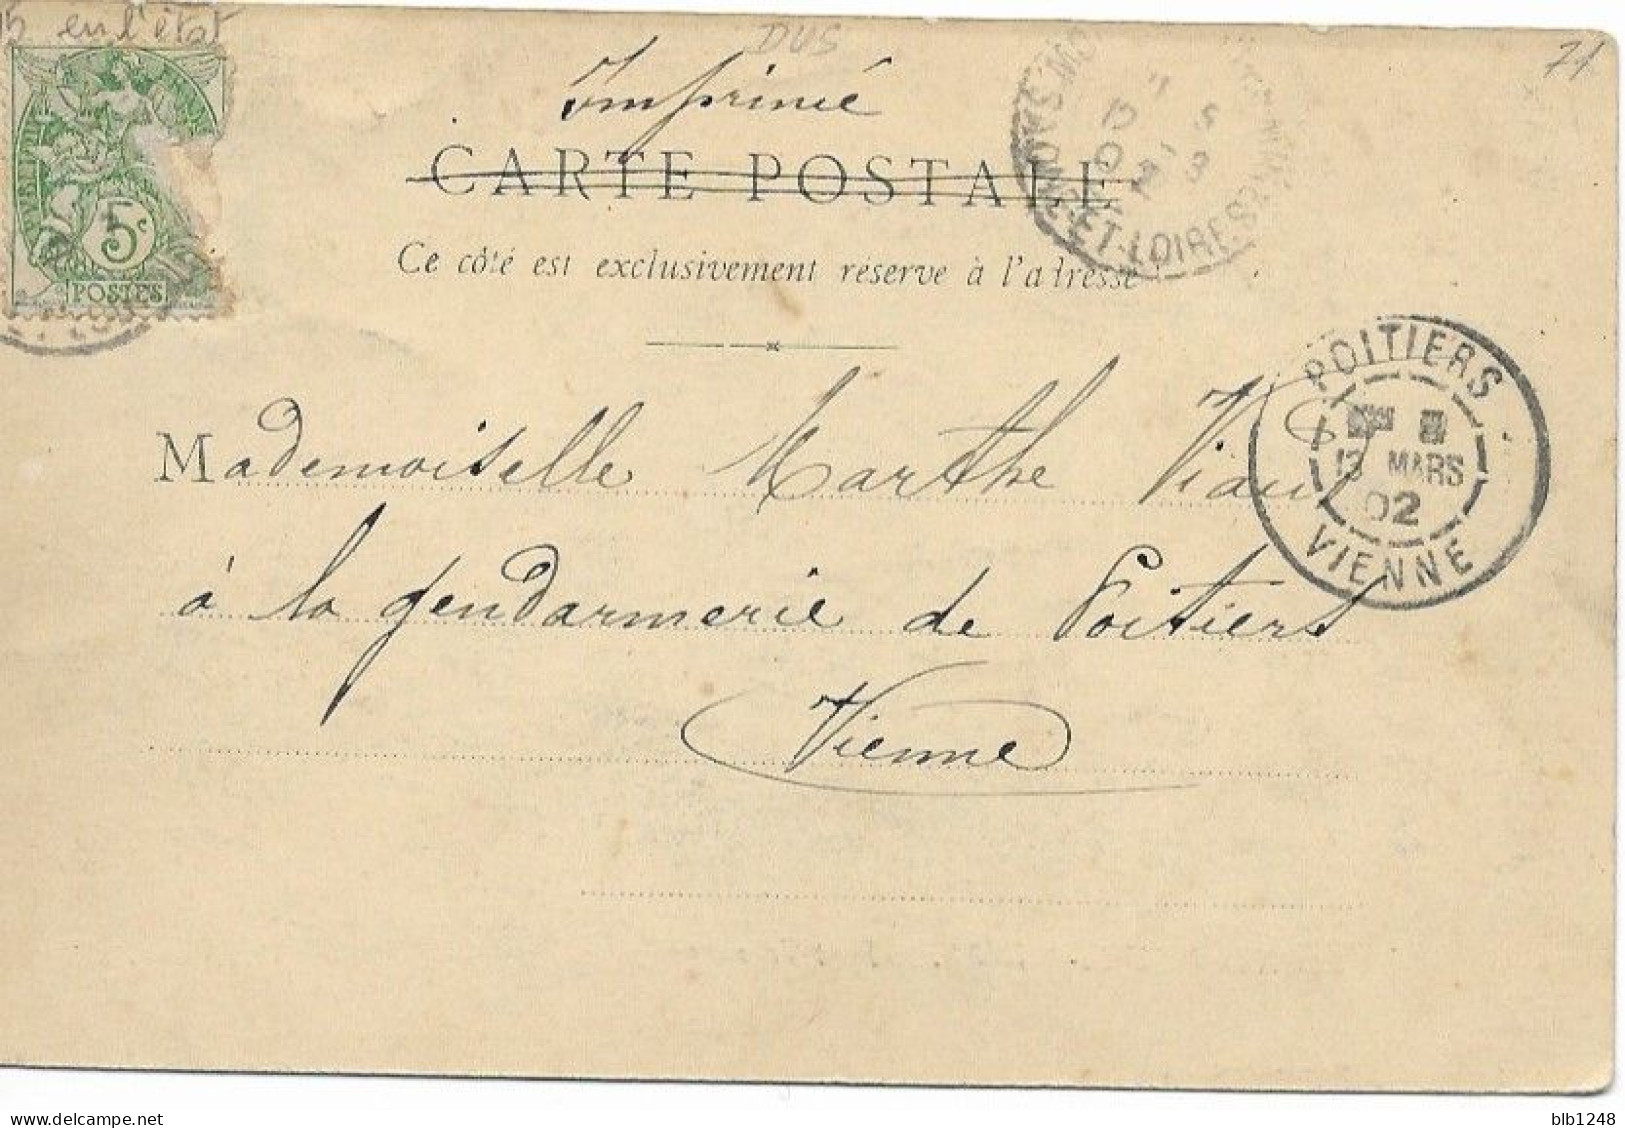 en l'état
DUS
71
Imprimé
CARTE POSTALE
Ce côté est exclusivement réservé à l'adresse
5c
POSTES
ET-LOIRE
POITIERS
13 MARS
02
VIENNE
Mademoiselle Marthe Viaud
à la gendarmerie de Poitiers
Vienne
delcampe.net
blb1248